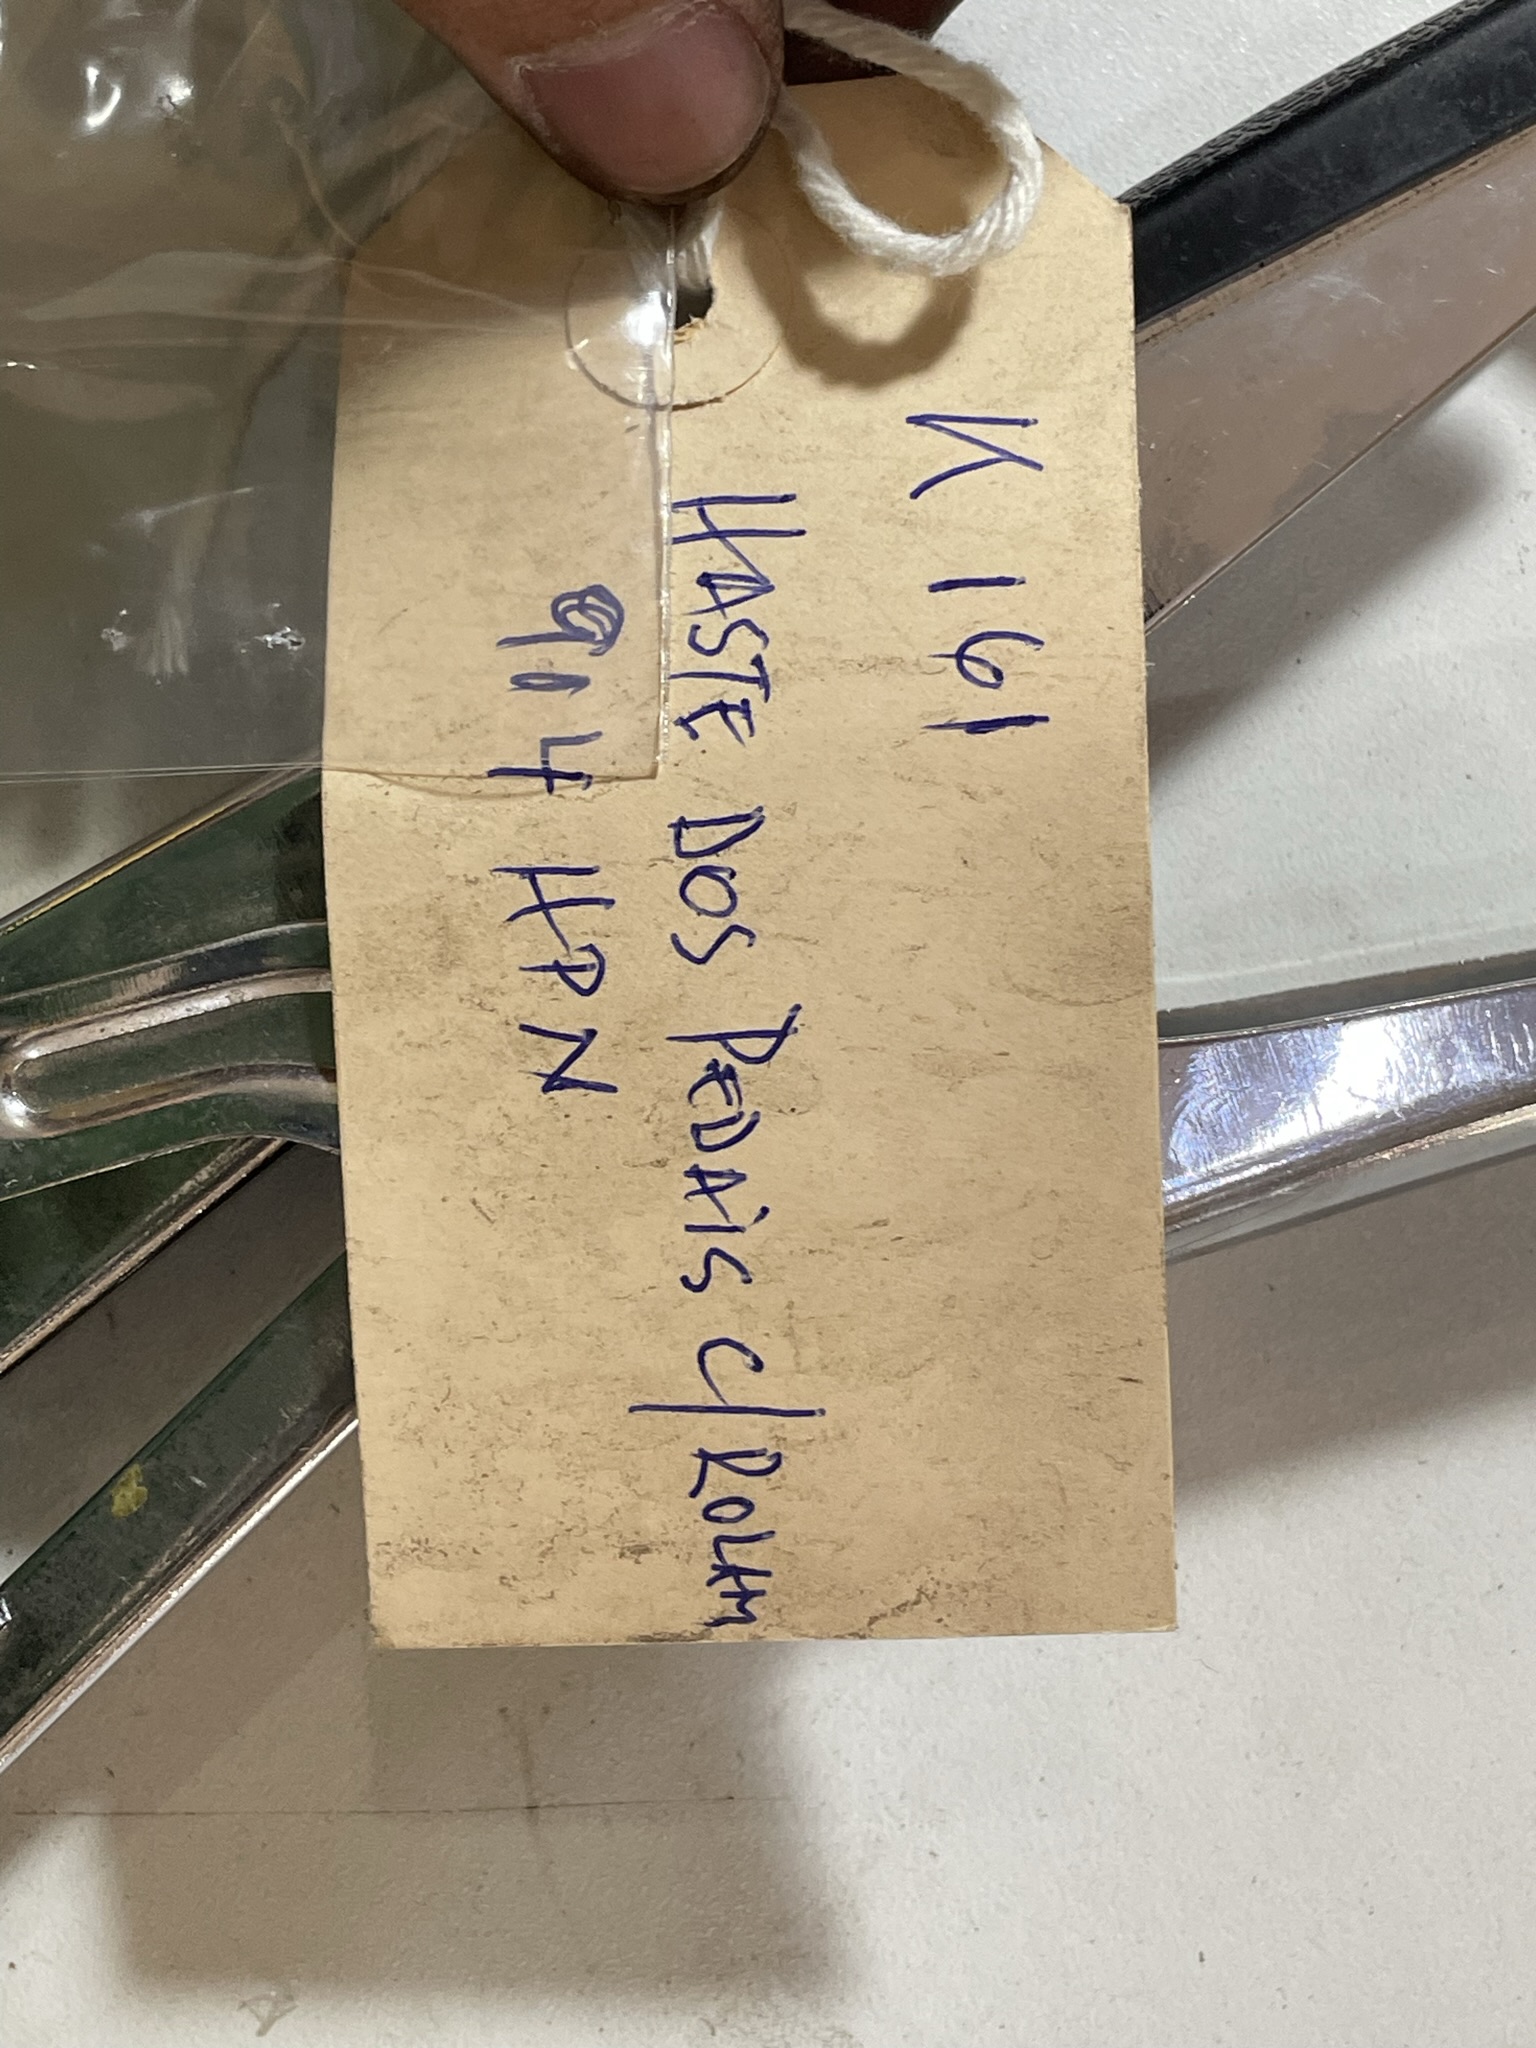 K 161
HASTE DOS PEDAIS C/ROLAM
904 HPN